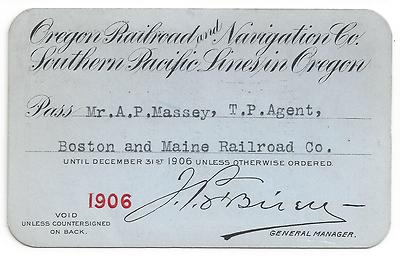 Oregon Railroad and Navigation Co.
Southern Pacific Lines in Oregon
Pass Mr.A.P.Massey, T.P.Agent,
Boston and Maine Railroad Co.
UNTIL DECEMBER 31ST 1906 UNLESS OTHERWISE ORDERED.
1906
J.P.O'Brien
VOID
UNLESS COUNTERSIGNED
ON BACK.
GENERAL MANAGER.